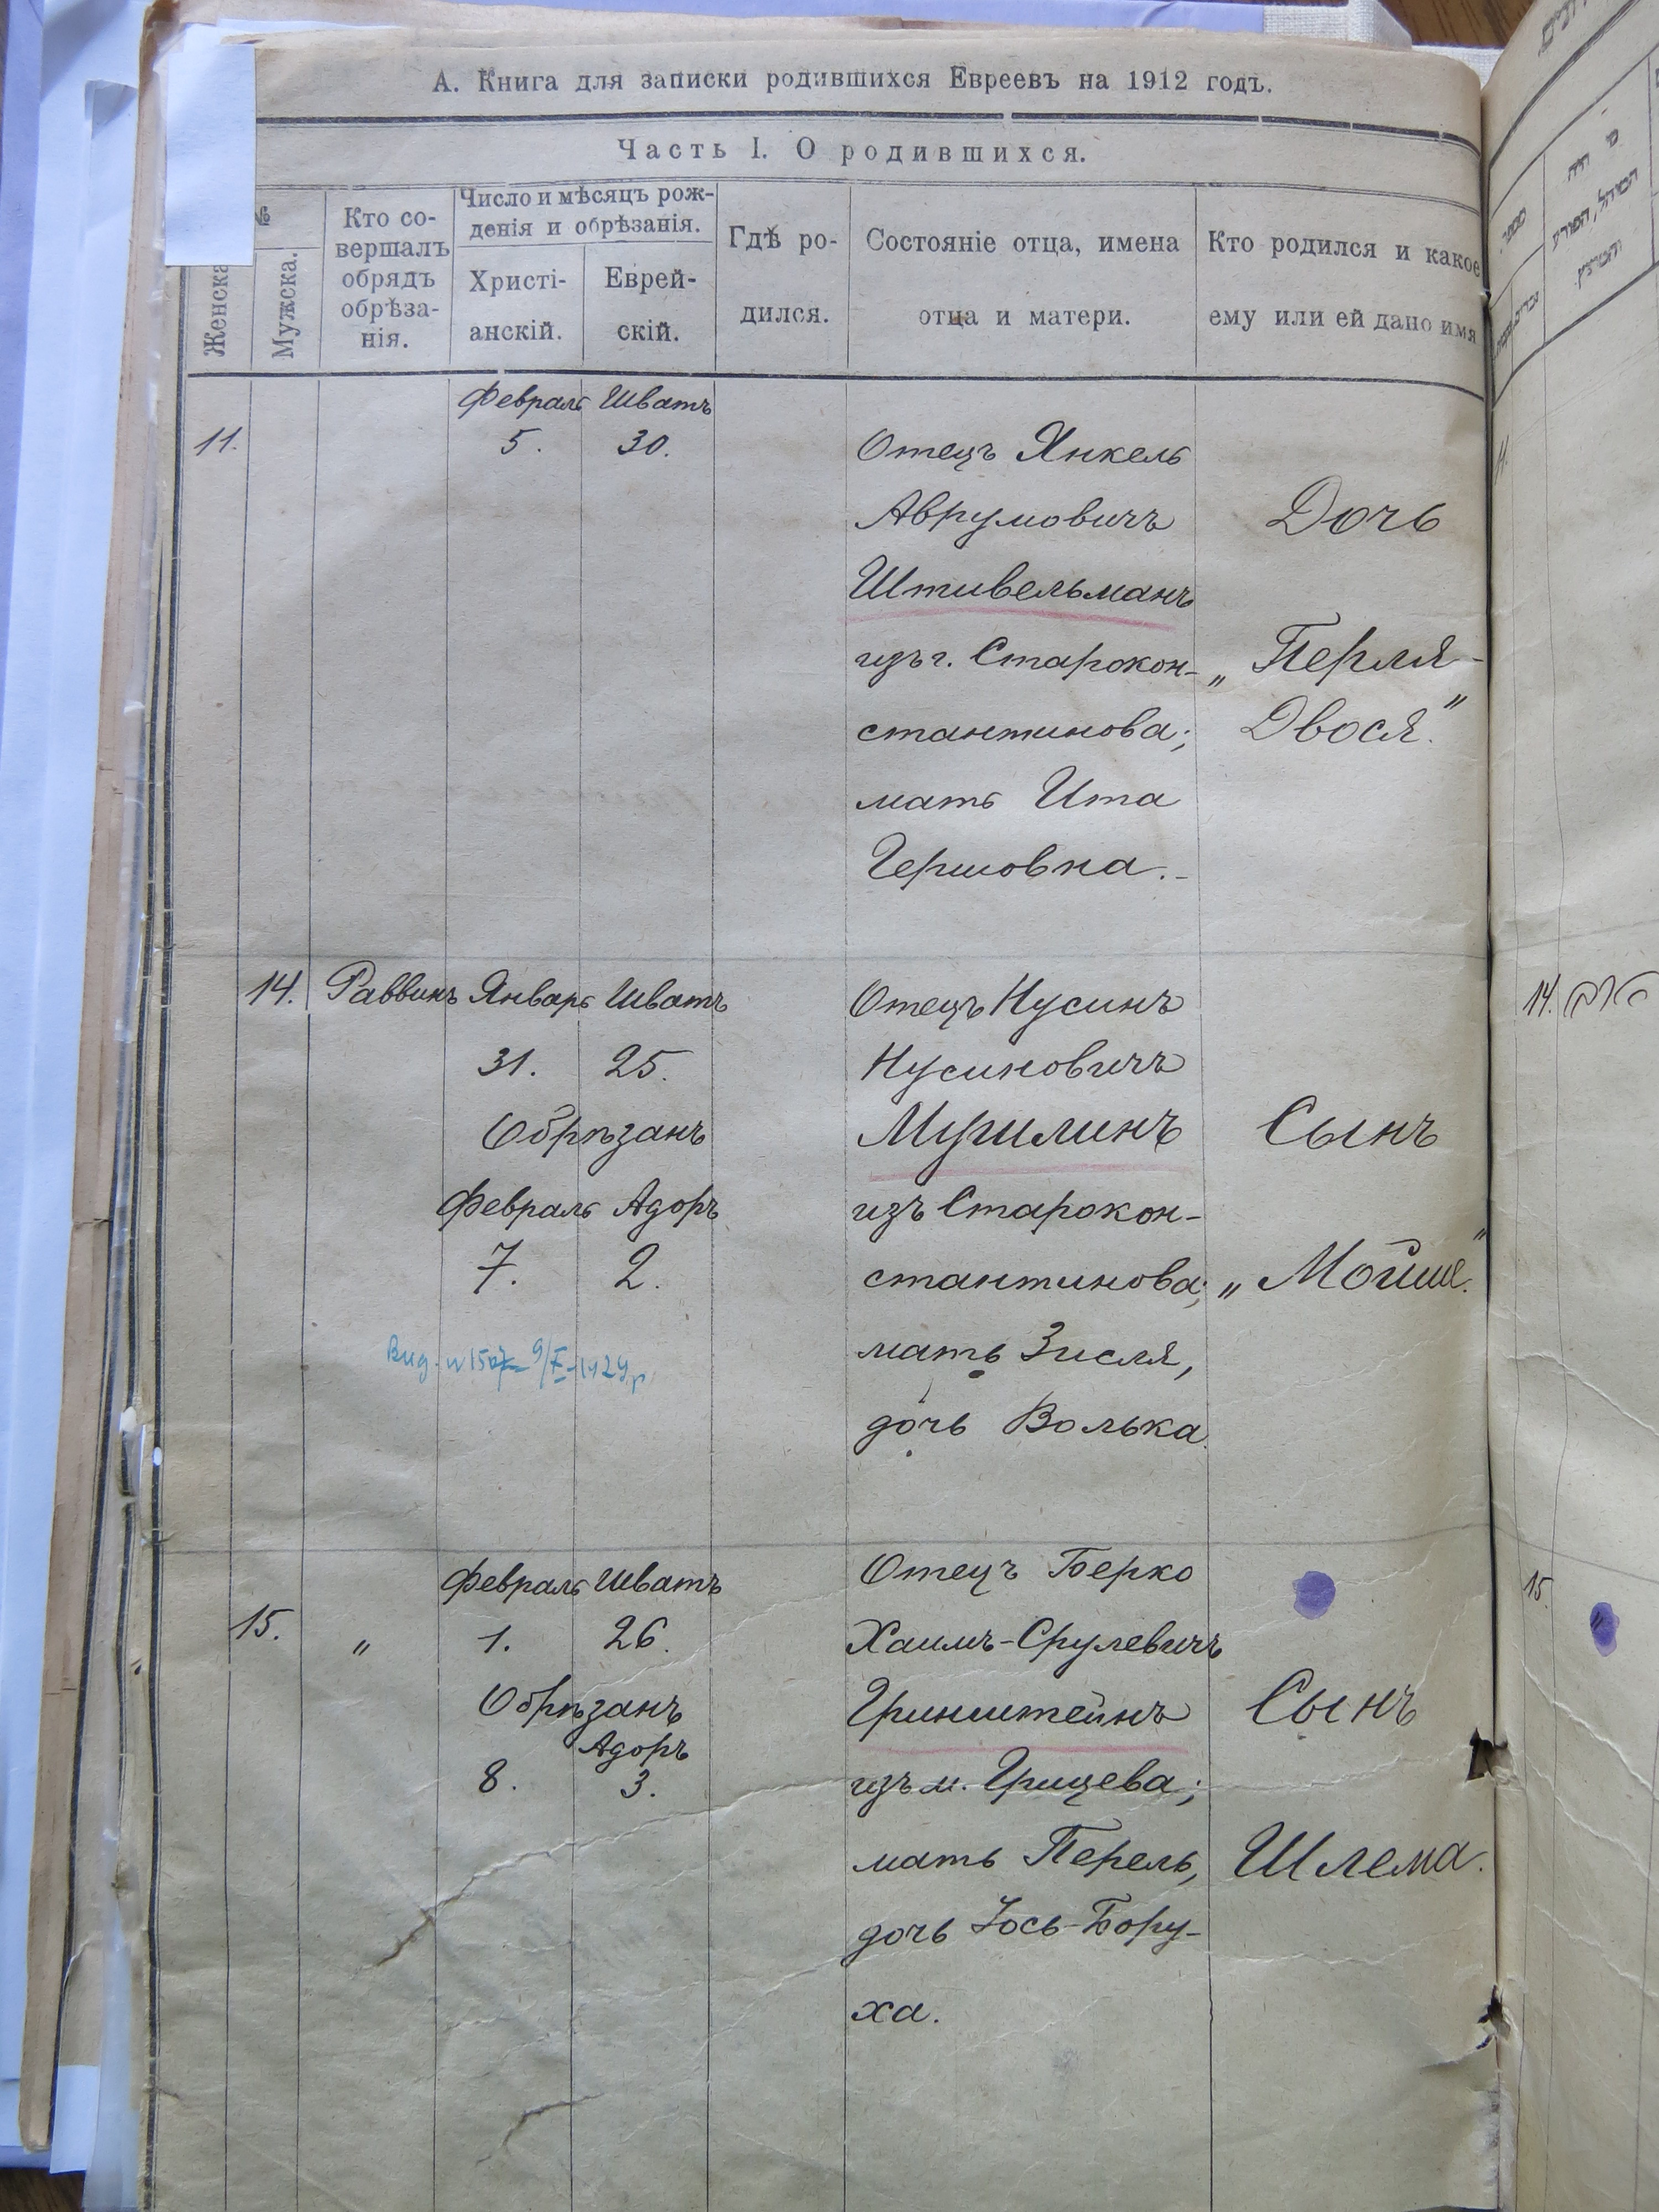 А. Книга для записки родившихся Евреевъ на 1912 годъ.
Часть I. О родившихся.
№
Женска
Мужска.
Кто со-
вершалъ
обрядъ
обрѣза-
нія.
Число и мѣсяцъ рож-
денія и обрѣзанія.
Христі-
анскій.
Еврей-
скій.
Гдѣ ро-
дился.
Состояніе отца, имена
отца и матери.
Кто родился и какое
ему или ей дано имя
Февраль Шватъ
11. 5. 30.
Отецъ Янкель
Аврумовичъ
Штивельманъ
изъ г. Старокон-
стантинова;
мать Ита
Гершовна.-
Дочь
„Перля-
Двося."
14. Раввинъ Январь Шватъ
31. 25.
Обрѣзанъ
Февраль Адоръ
7. 2.
Отецъ Нусинъ
Нусиновичъ
Мушлинъ
изъ Старокон-
стантинова;
мать Зисля,
дочь Волька.
Сынъ
„Мойше."
Февраль Шватъ
15. „ 1. 26.
Обрѣзанъ
Адоръ
8. 3.
Отецъ Берко
Хаимъ-Срулевичъ
Гринштейнъ
изъ м. Грицева;
мать Перель,
дочь Іось-Бору-
ха.
Сынъ
Шлема.
14.
15.